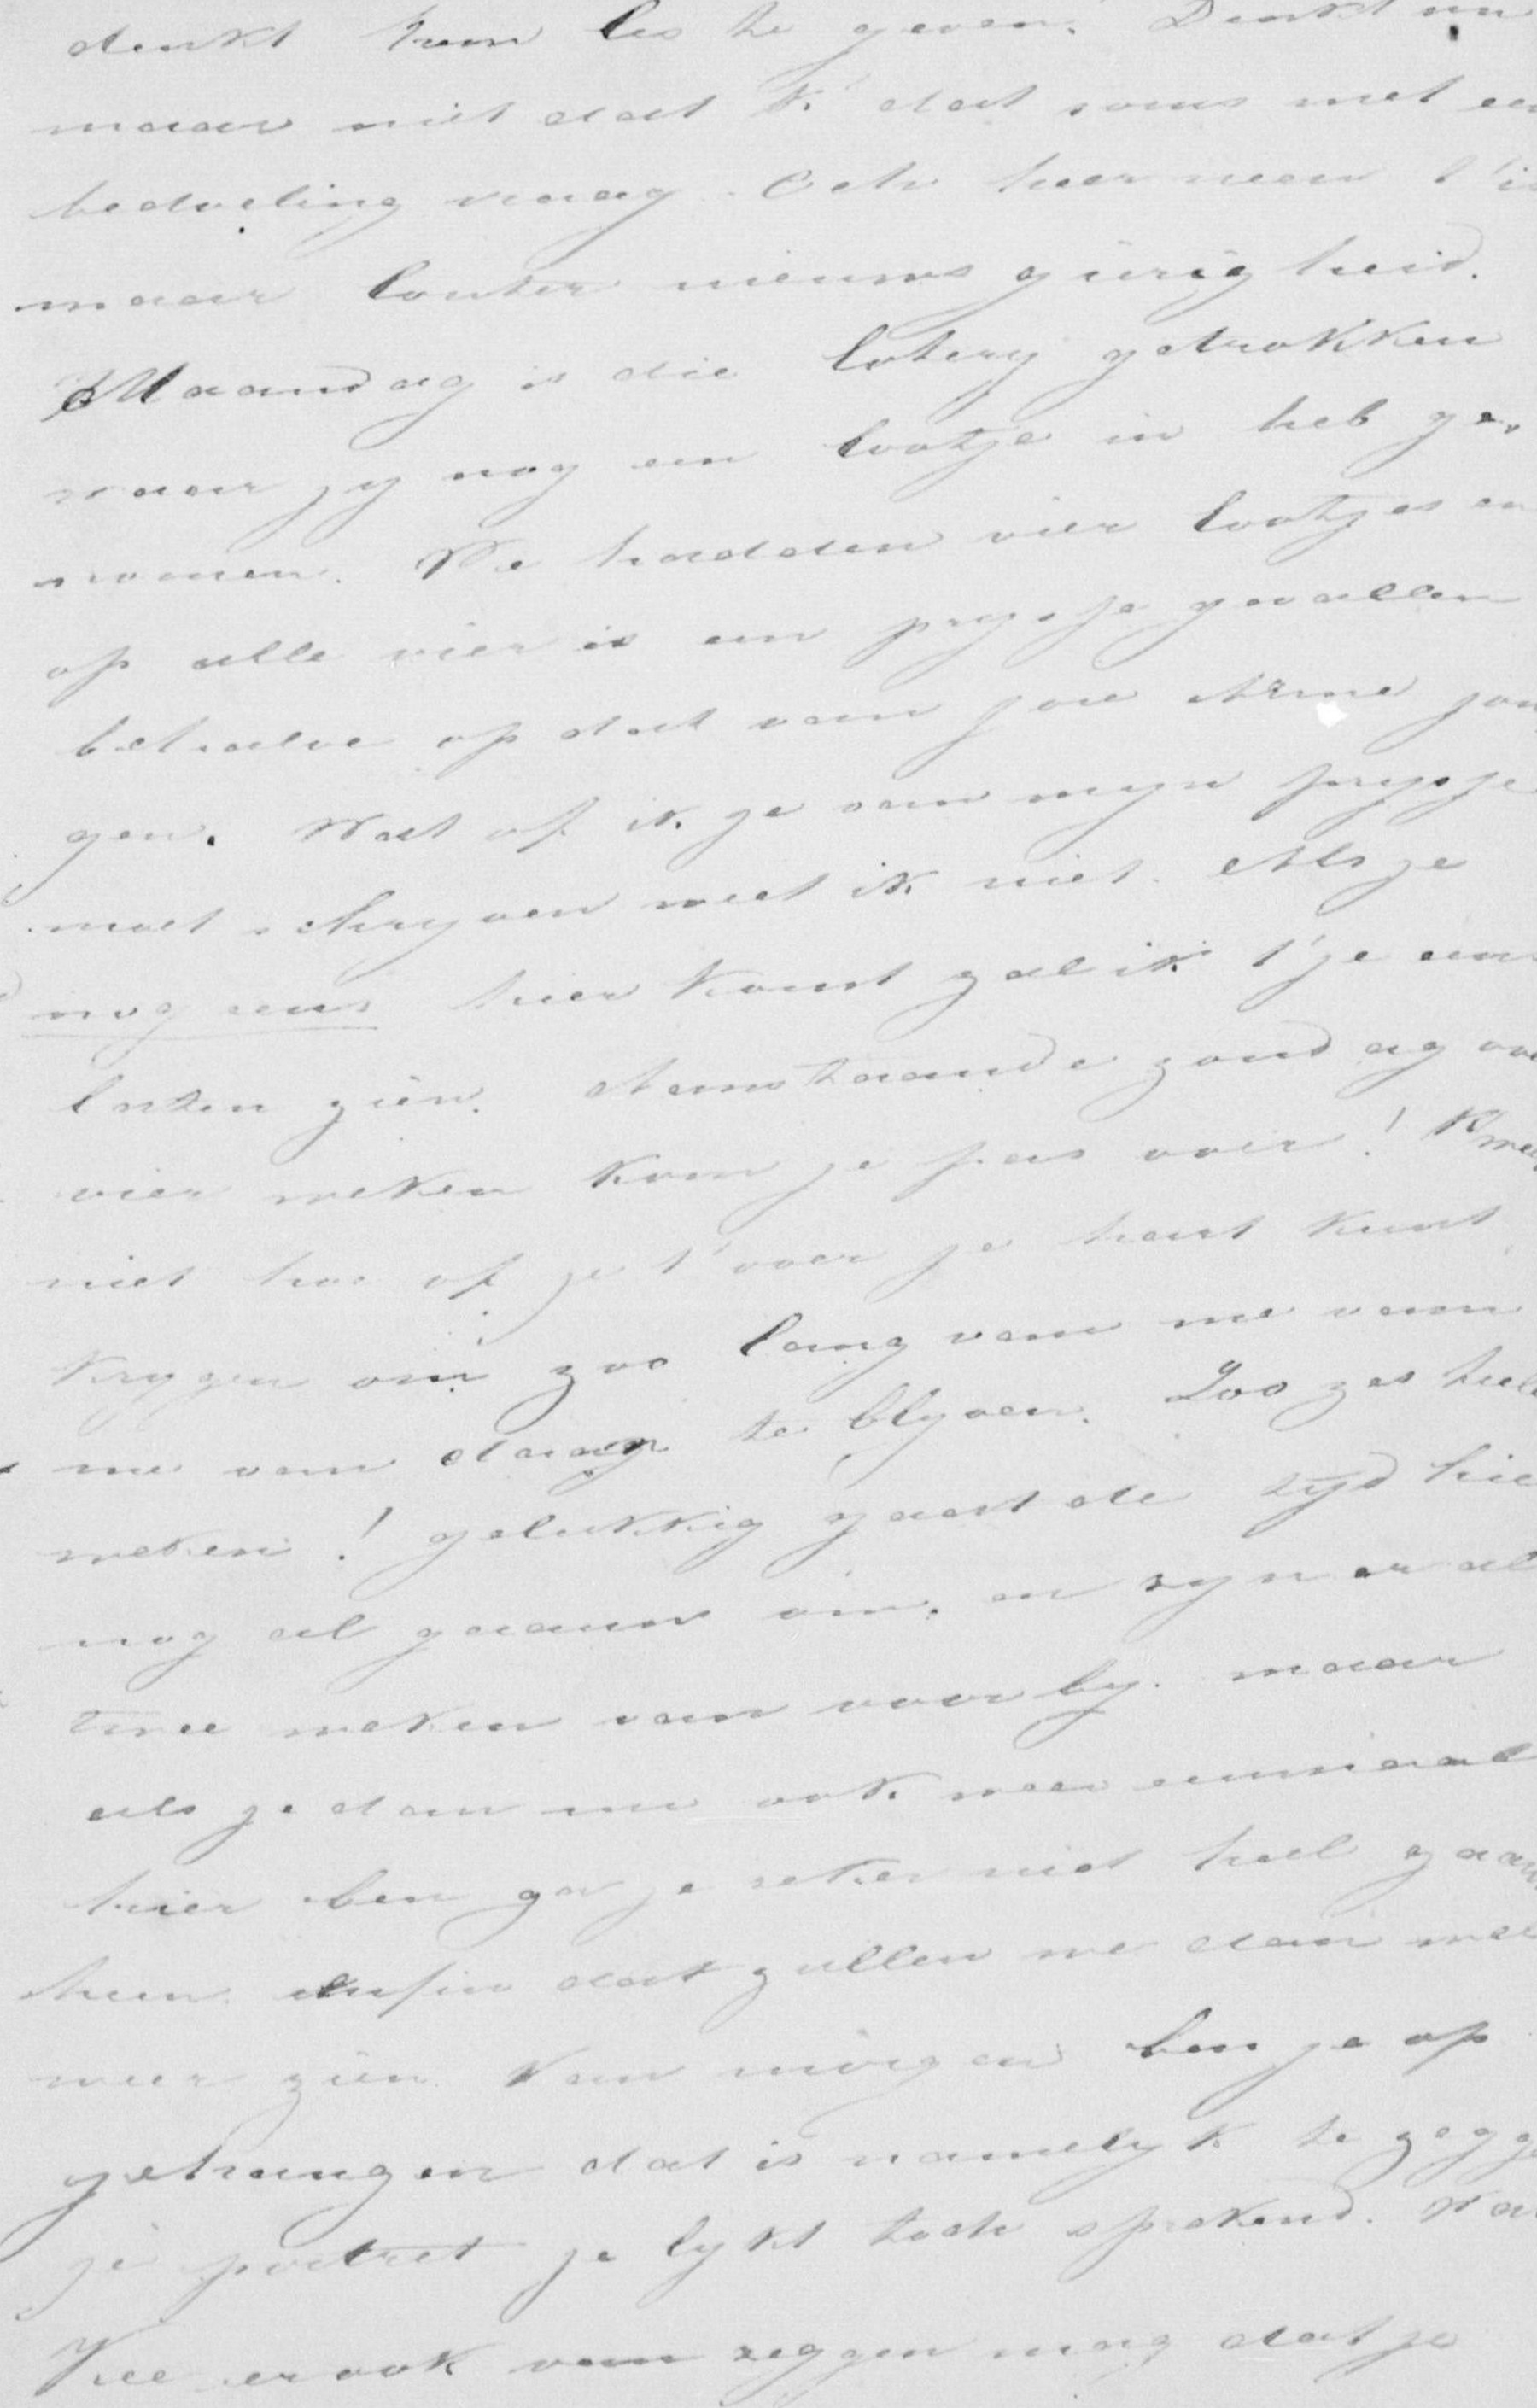 denkt hem les te geven. Denkt nu
maar niet dat k' dat soms met een
bedoeling vraag. Och heer neen t'is
maar louter nieuwsgierigheid.
Maandag is die lotery getrokken
waar jy nog een lootje in heb ge-
nomen. We hadden vier lootjes en
op alle vier is een prysje gevallen
behalve op dat van jou Arme jon
gen. Wat of ik je van myn prysje
moet schryven weet ik niet. Als je
nog eens hier komt zal ik t'je eens
laten zien. Aanstaande zondag over
vier weken kom je pas over! K'weet
niet hoe of je t'over je hart kunt
krygen om zoo lang van me van
me van daan te blyven. Zoo zes heele
weken! gelukkig gaat de tyd hier
nog al gaauw om. en zyn er al
twee weken van voorby. maar
als je dan nu ook weer eenmaal
hier ben ga je zeker niet heel gaauw
heen. Enfin dat zullen we dan wel
weer zien. Van morgen ben je op
gehangen dat is namelyk te zegge
je portret je lykt toch sprekend. Wa
Kee er ook van zeggen mag dat je